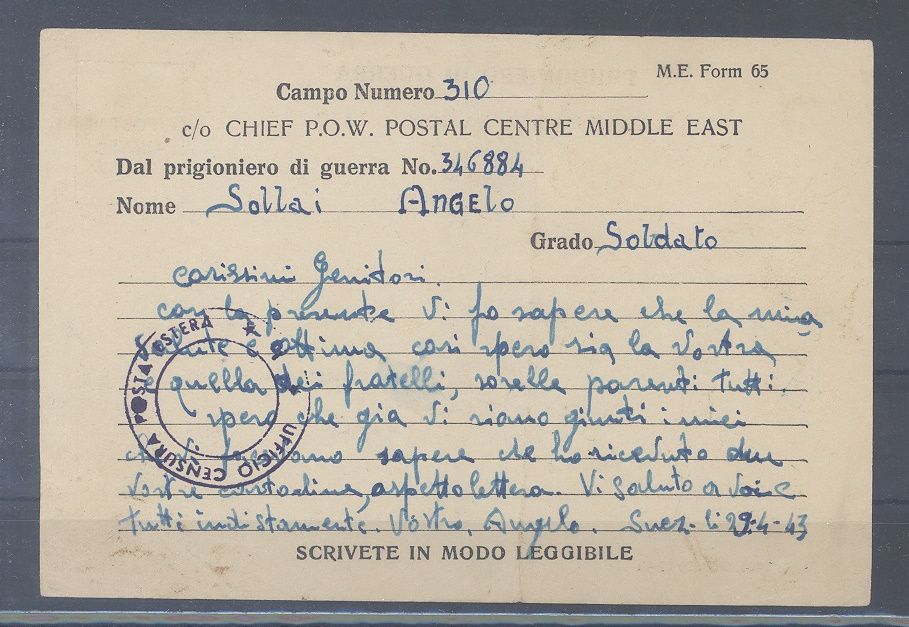 M.E. Form 65
Campo Numero 310
c/o CHIEF P.O.W. POSTAL CENTRE MIDDLE EAST
Dal prigioniero di guerra No. 346884
Nome Sollai Angelo
Grado Soldato
Carissimi Genitori.
con la presente Vi fo sapere che la mia
salute è ottima cosi spero sia la Vostra
e quella dei fratelli, sorelle parenti tutti.
spero che gia Vi siano giunti i miei
sapere che ho ricevuto due
Vostre cartoline, aspetto lettera. Vi saluto a Voi e
tutti indistamente. Vostro, Angelo. Suez. li 29-4-43
SCRIVETE IN MODO LEGGIBILE
UFFICIO CENSURA POSTA ESTERA